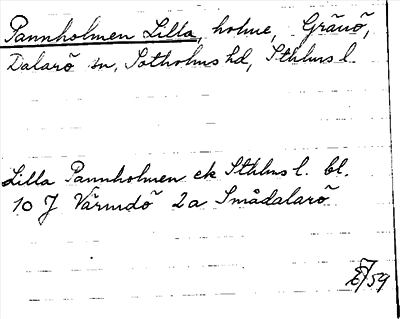 Pannholmen Lilla, holme, Gränö,
Dalarö sn, Sotholms hd, Sthlms l.
Lilla Pannholmen ek Sthlms l. bl.
10 J Värmdö 2a Smådalarö
/59